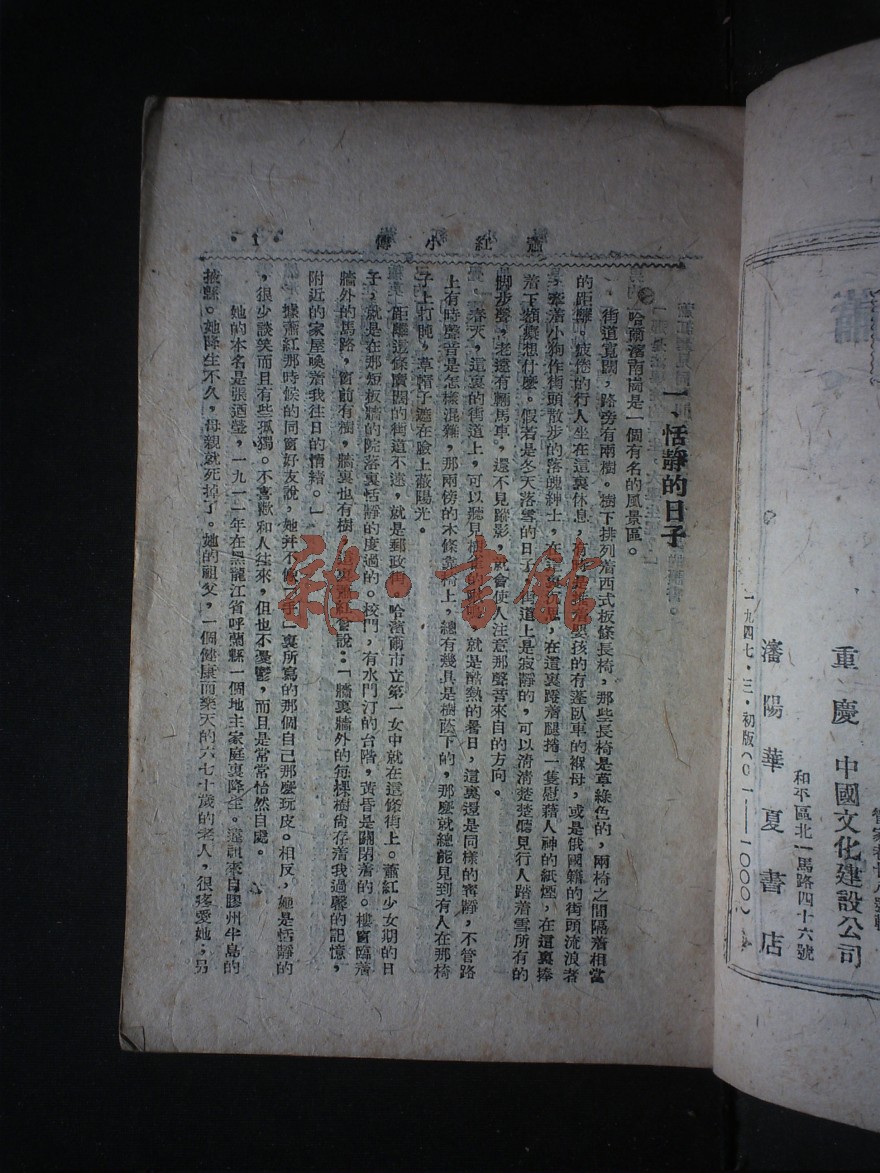 重慶 中國文化建設公司
和平區北一馬路四十六號
瀋陽華夏書店
一九四七・三・初版(0一——一000)
蕭紅小傳
・1・
一、恬靜的日子
哈爾濱南崗是一個有名的風景區。
街道寬闊,路旁有兩樹。樹下排列着西式板條長椅,那些長椅是草綠色的,兩椅之間隔着相當
的距離。疲倦的行人坐在這裏休息,有時是推着嬰孩的有蓬臥車的褓母,或是俄國籍的街頭流浪者
,牽着小狗作街頭散步的落魄紳士,在這裏沉思,在這裏蹺着腿捲一隻慰藉人神的紙煙,在這裏捧
着下頷癡想什麼。假若是冬天落雪的日子,街道上是寂靜的,可以清清楚楚聽見行人踏着雪所有的
脚步聲,老遠有輛馬車,還不見蹤影,就會使人注意那聲音來自的方向。
春天,這裏的街道上,可以聽見 就是酷熱的暑日,這裏還是同樣的寧靜,不管路
上有時聲音是怎樣混雜,那兩傍的木條靠椅上,總有幾具是樹蔭下的,那麼就總能見到有人在那椅
子上打盹,草帽子遮在臉上蔽陽光。
距離這條廣闊的街道不遠,就是郵政街,哈濱爾市立第一女中就在這條街上。蕭紅少女期的日
子,就是在那短板牆的院落裏恬靜的度過的。校門,有水門汀的台階,黃昏是關閉着的。樓窗臨着
牆外的馬路,窗前有樹,牆裏也有樹,這裏蕭紅曾說:「牆裏牆外的每棵樹尙存着我過馨的記憶,
附近的家屋喚着我往日的情緒。」
據蕭紅那時候的同窗好友說,她幷不像「手」裏所寫的那個自己那麼玩皮。相反,她是恬靜的
,很少談笑而且有些孤獨。不喜歡和人往來,但也不憂鬱,而且是常常怡然自處。
她的本名是張迺瑩,一九一一年在黑龍江省呼蘭縣一個地主家庭裏降生。遠祖來自膠州半島的
掖縣。她降生不久,母親就死掉了。她的祖父,一個健康而樂天的六七十歲的老人,很疼愛她;另